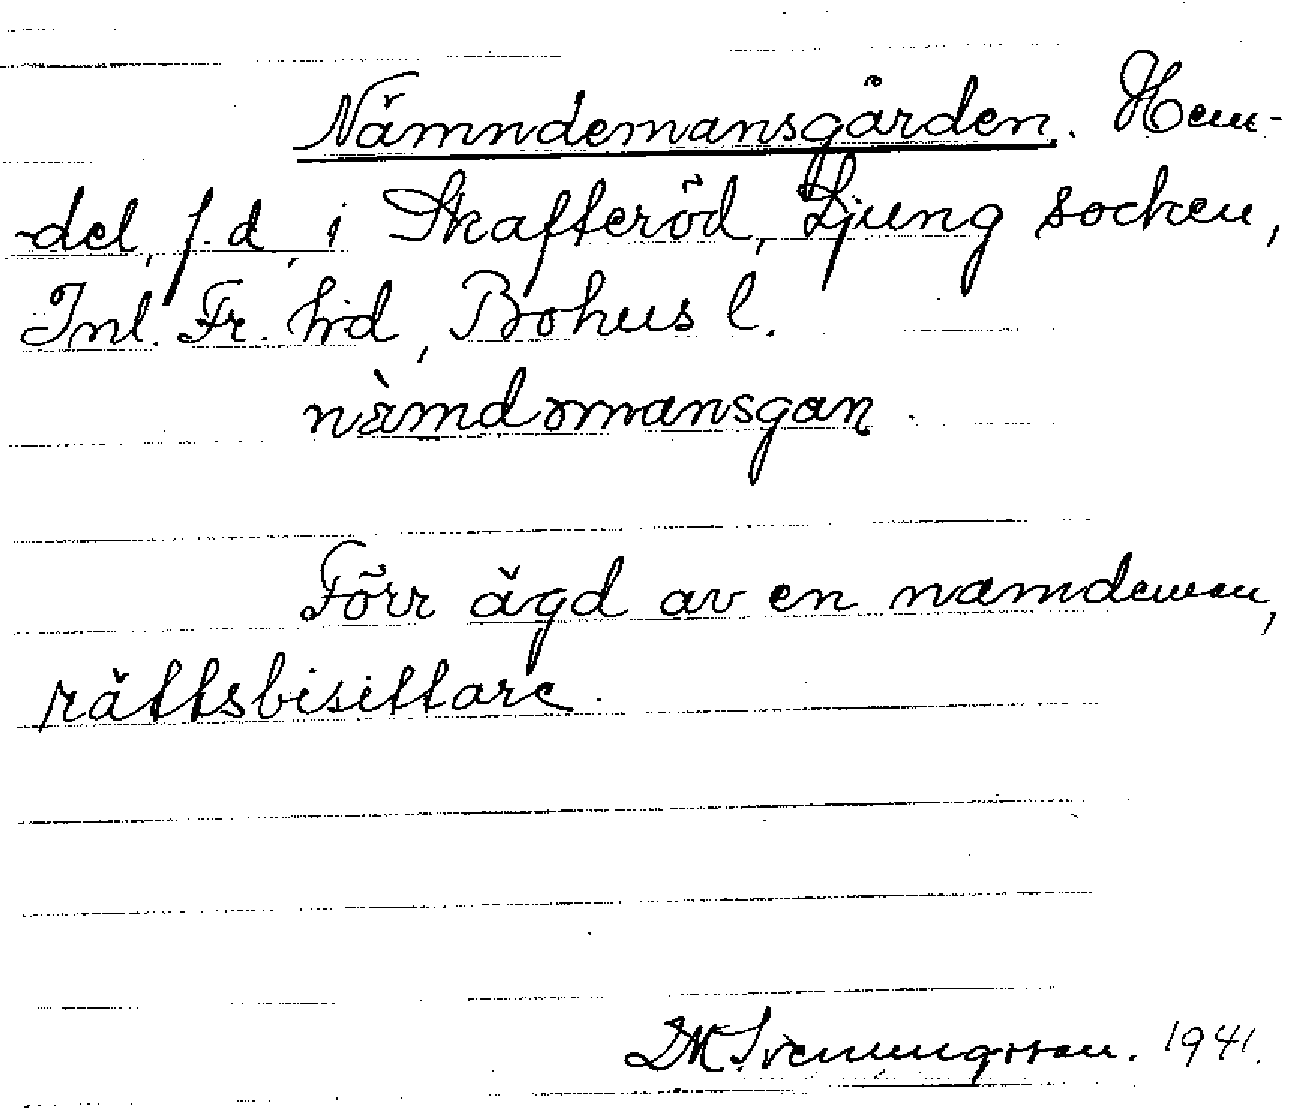 Nämndemansgården. Hem-
del, f.d., i Skafteröd, Ljung socken,
Inl. Fr. hd, Bohus l.
nämdəmansgan
Förr ägd av en namdeman,
rättsbisittare.
DM Svenungsson. 1941.